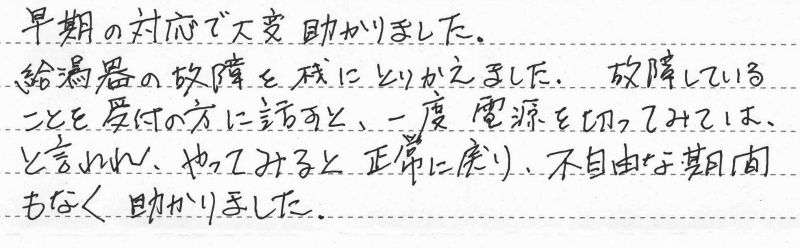 早期の対応で大変助かりました。
給湯器の故障を機にとりかえました. 故障している
ことを受付の方に話すと、一度電源を切ってみては、
と言われ、やってみると正常に戻り、不自由な期間
もなく助かりました.